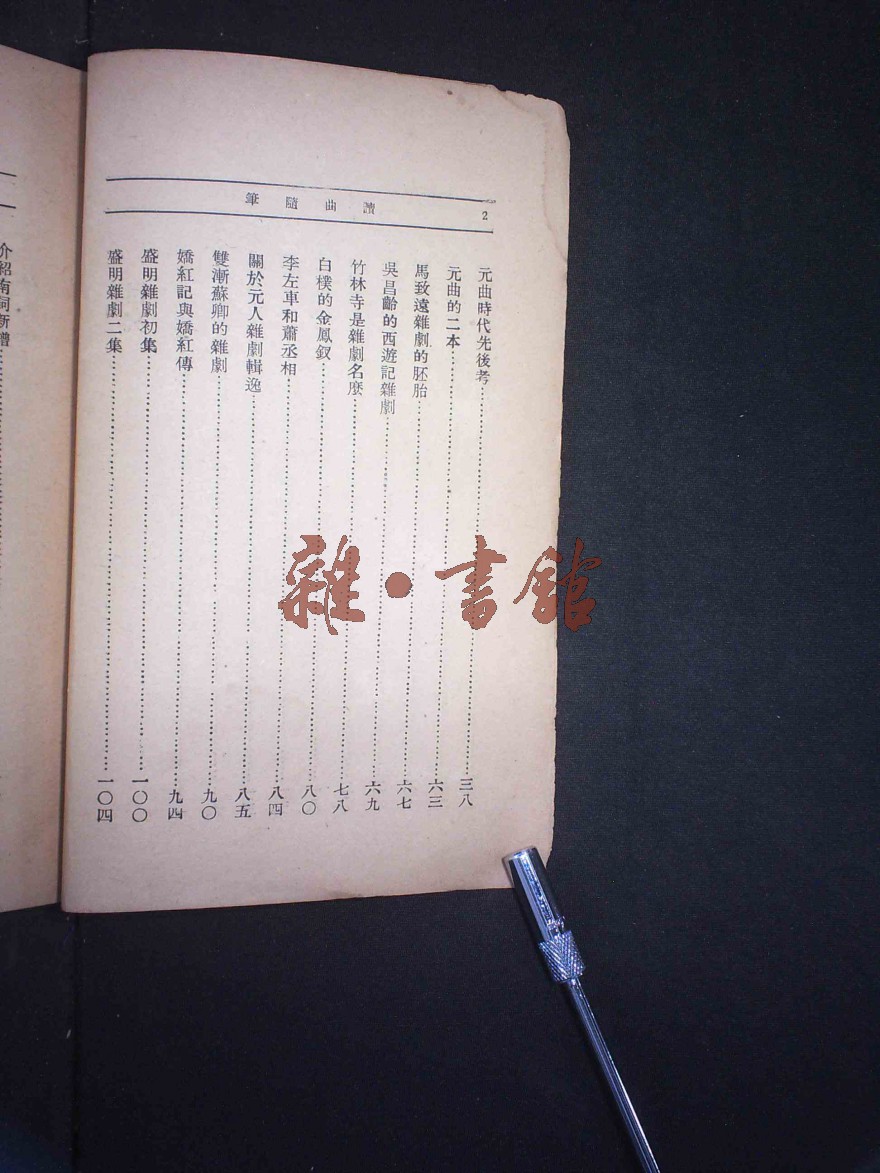 筆隨曲讀
2
元曲時代先後考……三八
元曲的二本……六三
馬致遠雜劇的胚胎……六七
吳昌齡的西遊記雜劇……六九
竹林寺是雜劇名麼……七八
白樸的金鳳釵……八〇
李左車和蕭丞相……八四
關於元人雜劇輯逸……八五
雙漸蘇卿的雜劇……九〇
嬌紅記與嬌紅傳……九四
盛明雜劇初集……一〇〇
盛明雜劇二集……一〇四
介紹南詞新譜……
雜·書館